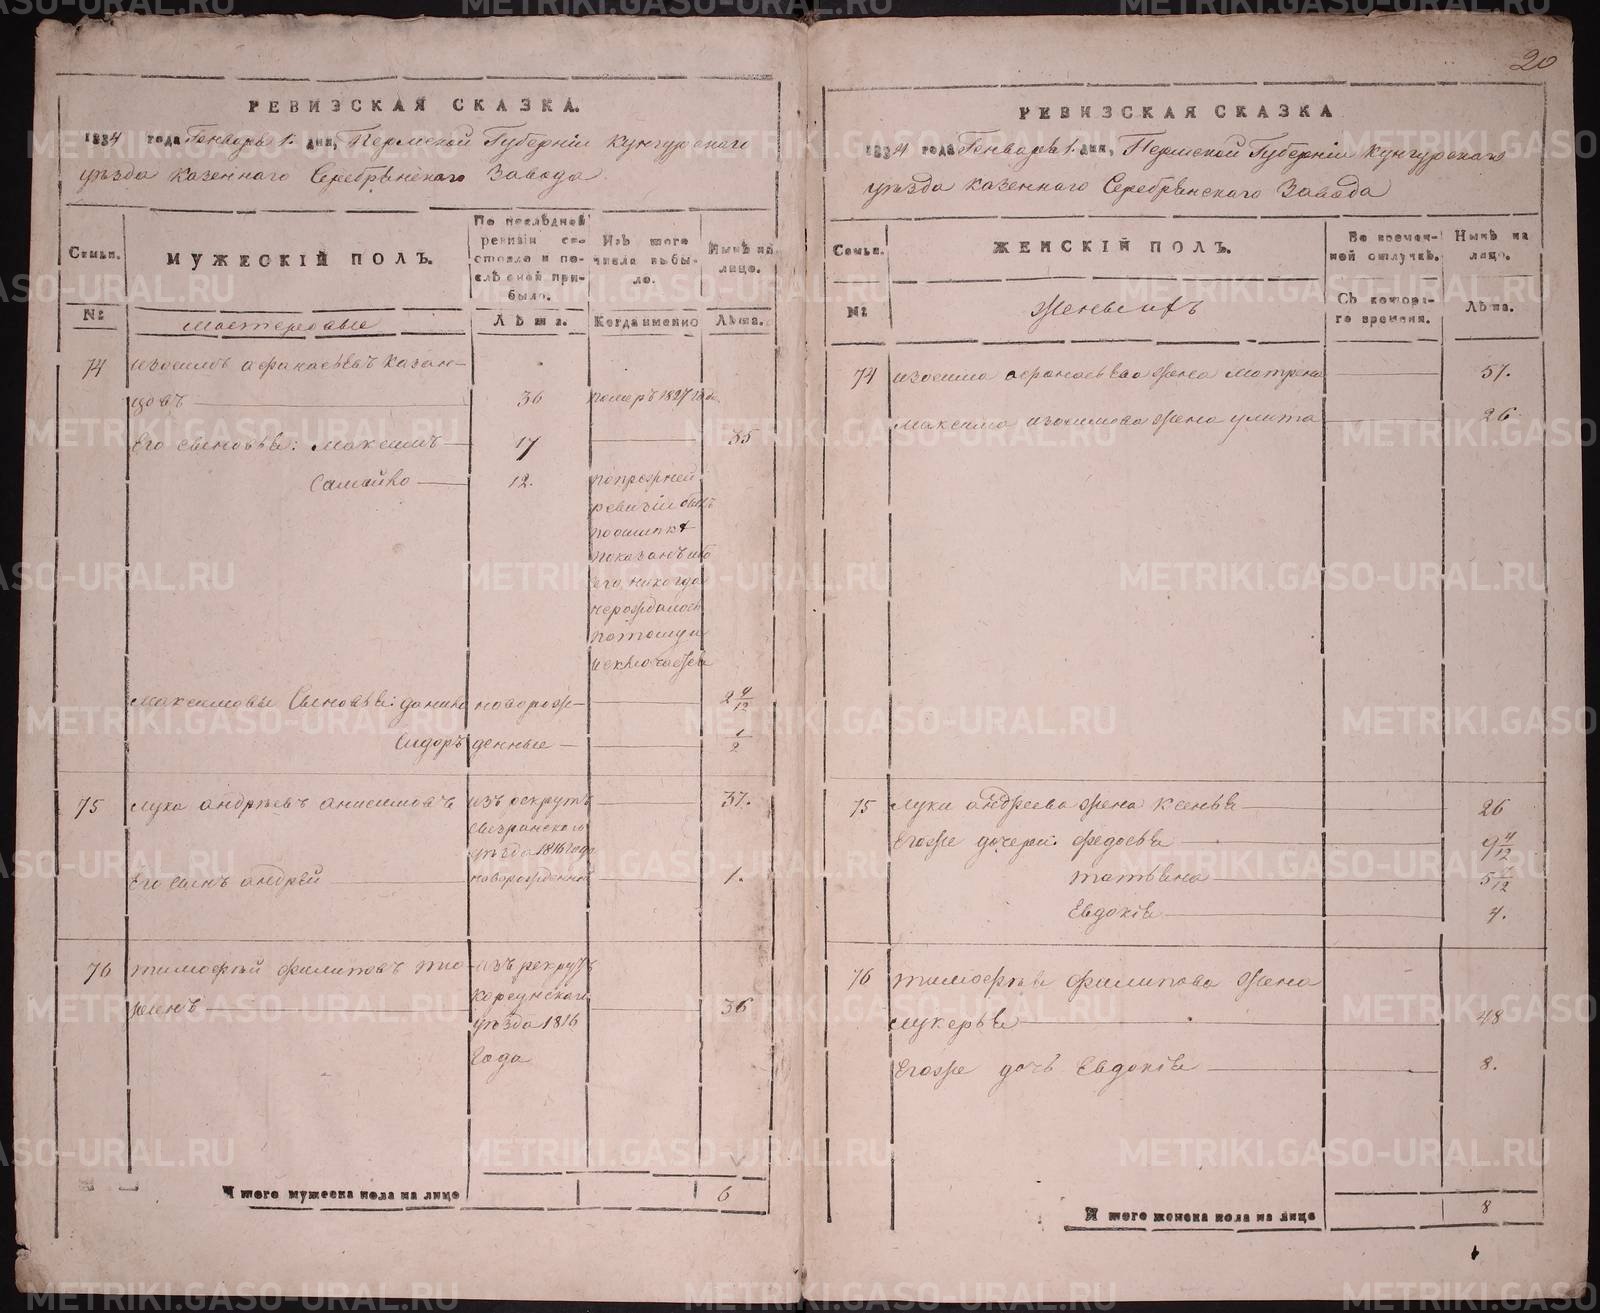 20
РЕВИЗСКАЯ СКАЗКА.
1834 года Генваря 1. дня, Пермской Губерніи Кунгурского
уѣзда казенного Серебрянского Завода.
Семьи.
МУЖЕСКІЙ ПОЛЪ.
По послѣдней ревизіи состояло и послѣ оной прибыло.
Изъ того числа выбыло.
Нынѣ на лицо.
№
мастеровые
Лѣта.
Когда именно
Лѣта.
74
изосимъ афанасьевъ Казан-
цовъ
36
померъ 1827 года
Его сыновья: Максимъ
17
35
Самойло
12.
попрежней
ревизіи былъ
поошипкѣ
показанъ ибо
его никогда
нерождалось
потому и
исключается
Максимовы Сыновья: данило
новорож-
2 4/12
Сидоръ
денные
1/2
75
лука андрѣевъ анисимовъ
изъ рекрутъ
37.
Сызранского
уѣзда 1816 года
Его сынъ андрѣй
новорожденной
1.
76
тимофѣй филиповъ
изъ рекрутъ
Корсунского
36
уѣзда 1816
года
Итого мужеска пола на лицо
6
РЕВИЗСКАЯ СКАЗКА
1834 года Генваря 1. дня, Пермской Губерніи Кунгурского
уѣзда казенного Серебрянского Завода
Семьи.
ЖЕНСКІЙ ПОЛЪ.
Во временной отлучкѣ.
Нынѣ на лицо.
№
Женылихъ
Съ котораго времени.
Лѣта.
74
изосима афанасьева жена матрена
57.
Максима изосимова жена улита
26
75
луки андреева жена ксенья
26
Егоже дочери: федосья
9 4/12
татьяна
5 1/12
Евдокія
4.
76
тимофѣя филипова жена
лукерья
48
Егоже дочь Евдокія
8.
Итого женска пола на лицо
8
METRIKI.GASO-URAL.RU